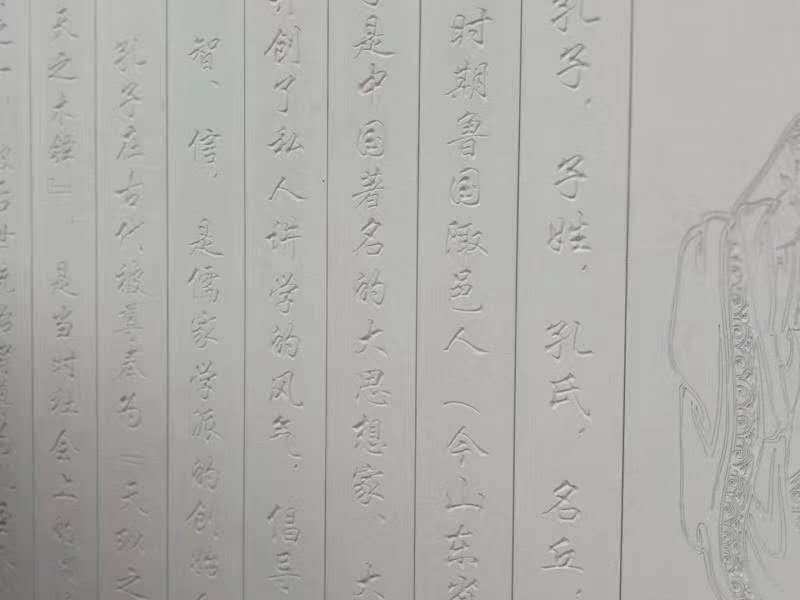 孔子，子姓，孔氏，名丘，
时期鲁国陬邑人（今山东
是中国著名的大思想家、大
创了私人讲学的风气，倡导
智、信，是儒家学派的创始
孔子在古代被尊奉为“天纵之
天之木铎』，是当时社会上的
后世统治